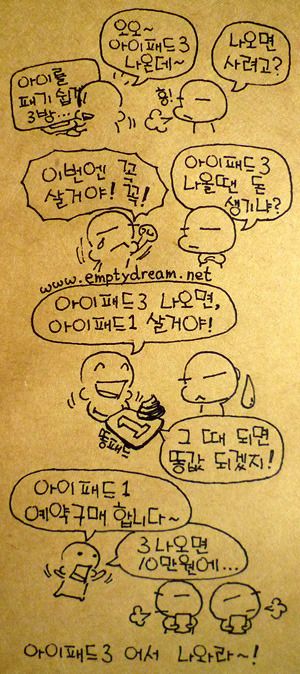 오오~
아이패드3
나온데~
나오면
사려고?
아이를
패기 쉽게
3방...
흥!
이번엔 꼭
살거야! 꼭!
아이패드3
나올땐 돈
생기냐?
www.emptydream.net
아이패드3 나오면,
아이패드1 살거야!
똥패드
그 때 되면
똥값 되겠지!
아이패드1
예약구매 합니다~
3 나오면
10만원에...
아이패드3 어서 나와라~!